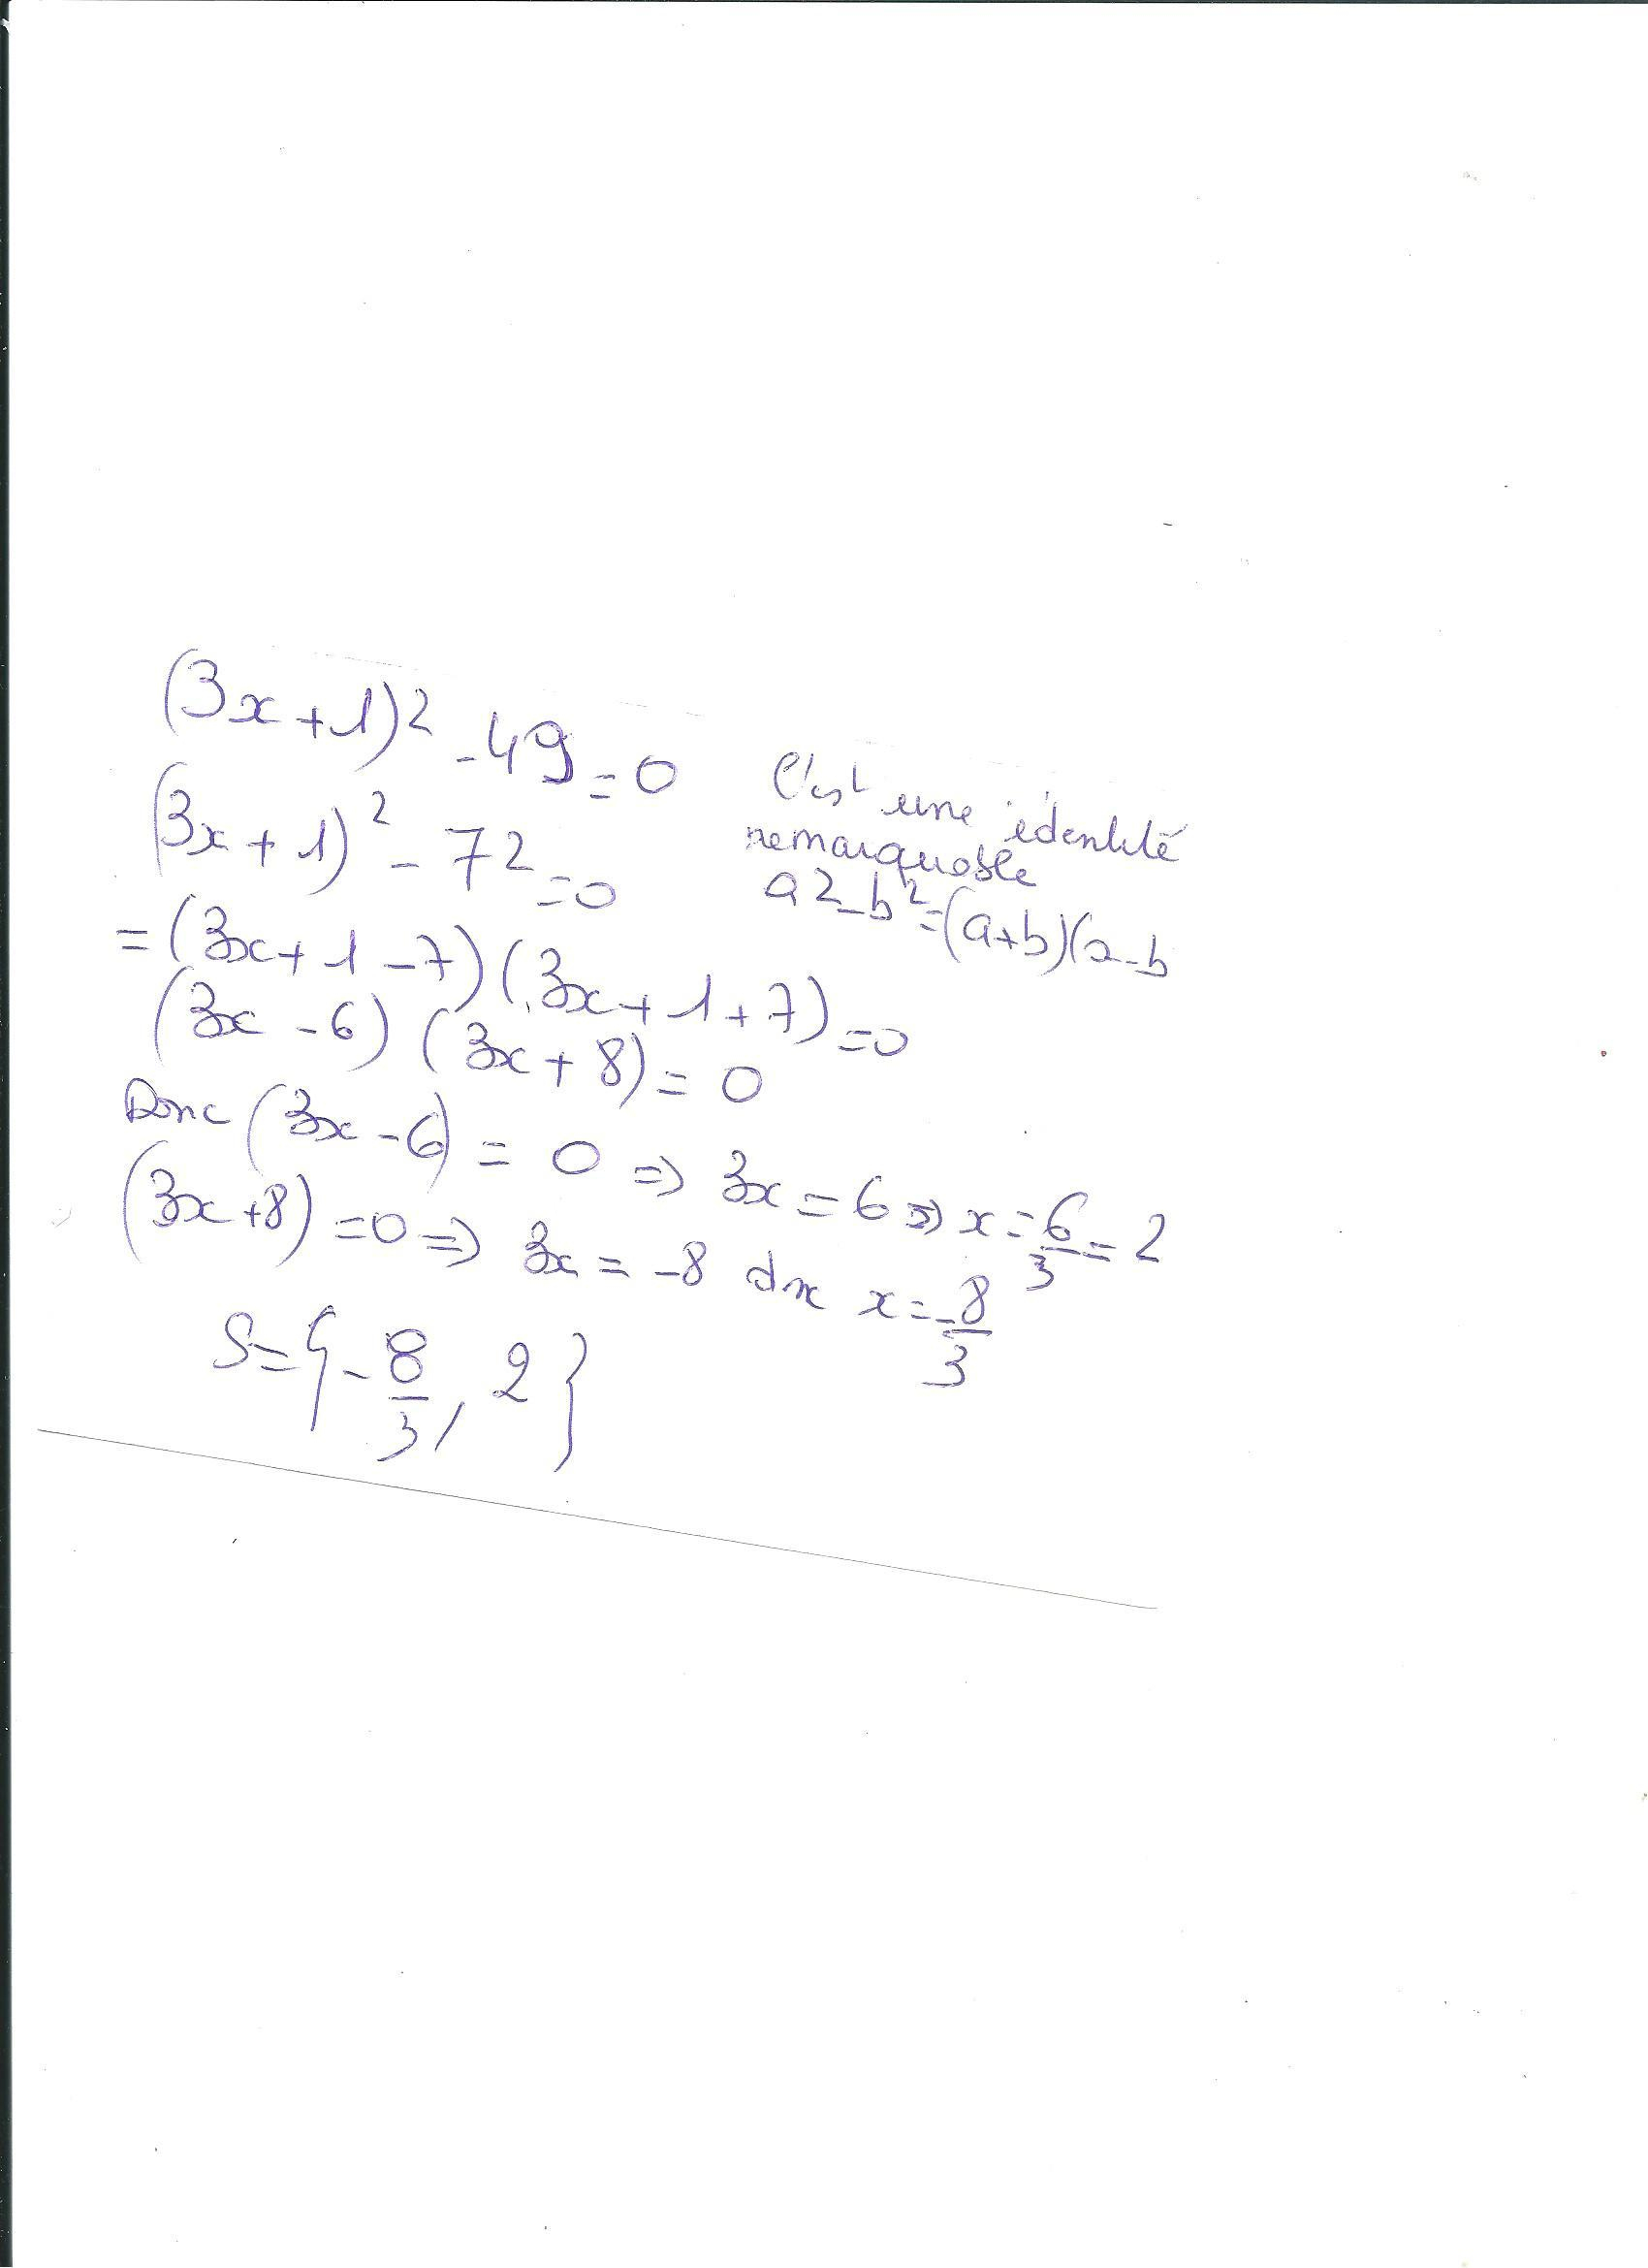 (3x+1)² - 49 = 0
C'est une identité
remarquable
(3x+1)² - 7² = 0
a² - b² = (a+b)(a-b
= (3x+1-7)(3x+1+7) = 0
(3x-6)(3x+8) = 0
Donc (3x-6) = 0 => 3x = 6 => x = 6/3 = 2
(3x+8) = 0 => 3x = -8 dnc x = -8/3
S = {-8/3, 2}